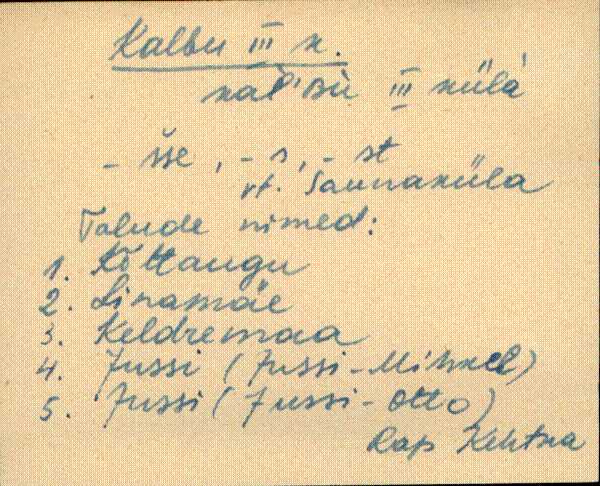 Kalbu III k.
kal'bù III külà
- sse, - s, - st
vt. Saunaküla
Talude nimed:
1. Kõttaugu
2. Linamäe
3. Keldremaa
4. Jussi (Jussi-Mihkel)
5. Jussi (Jussi-Otto)
Rap Kehtna